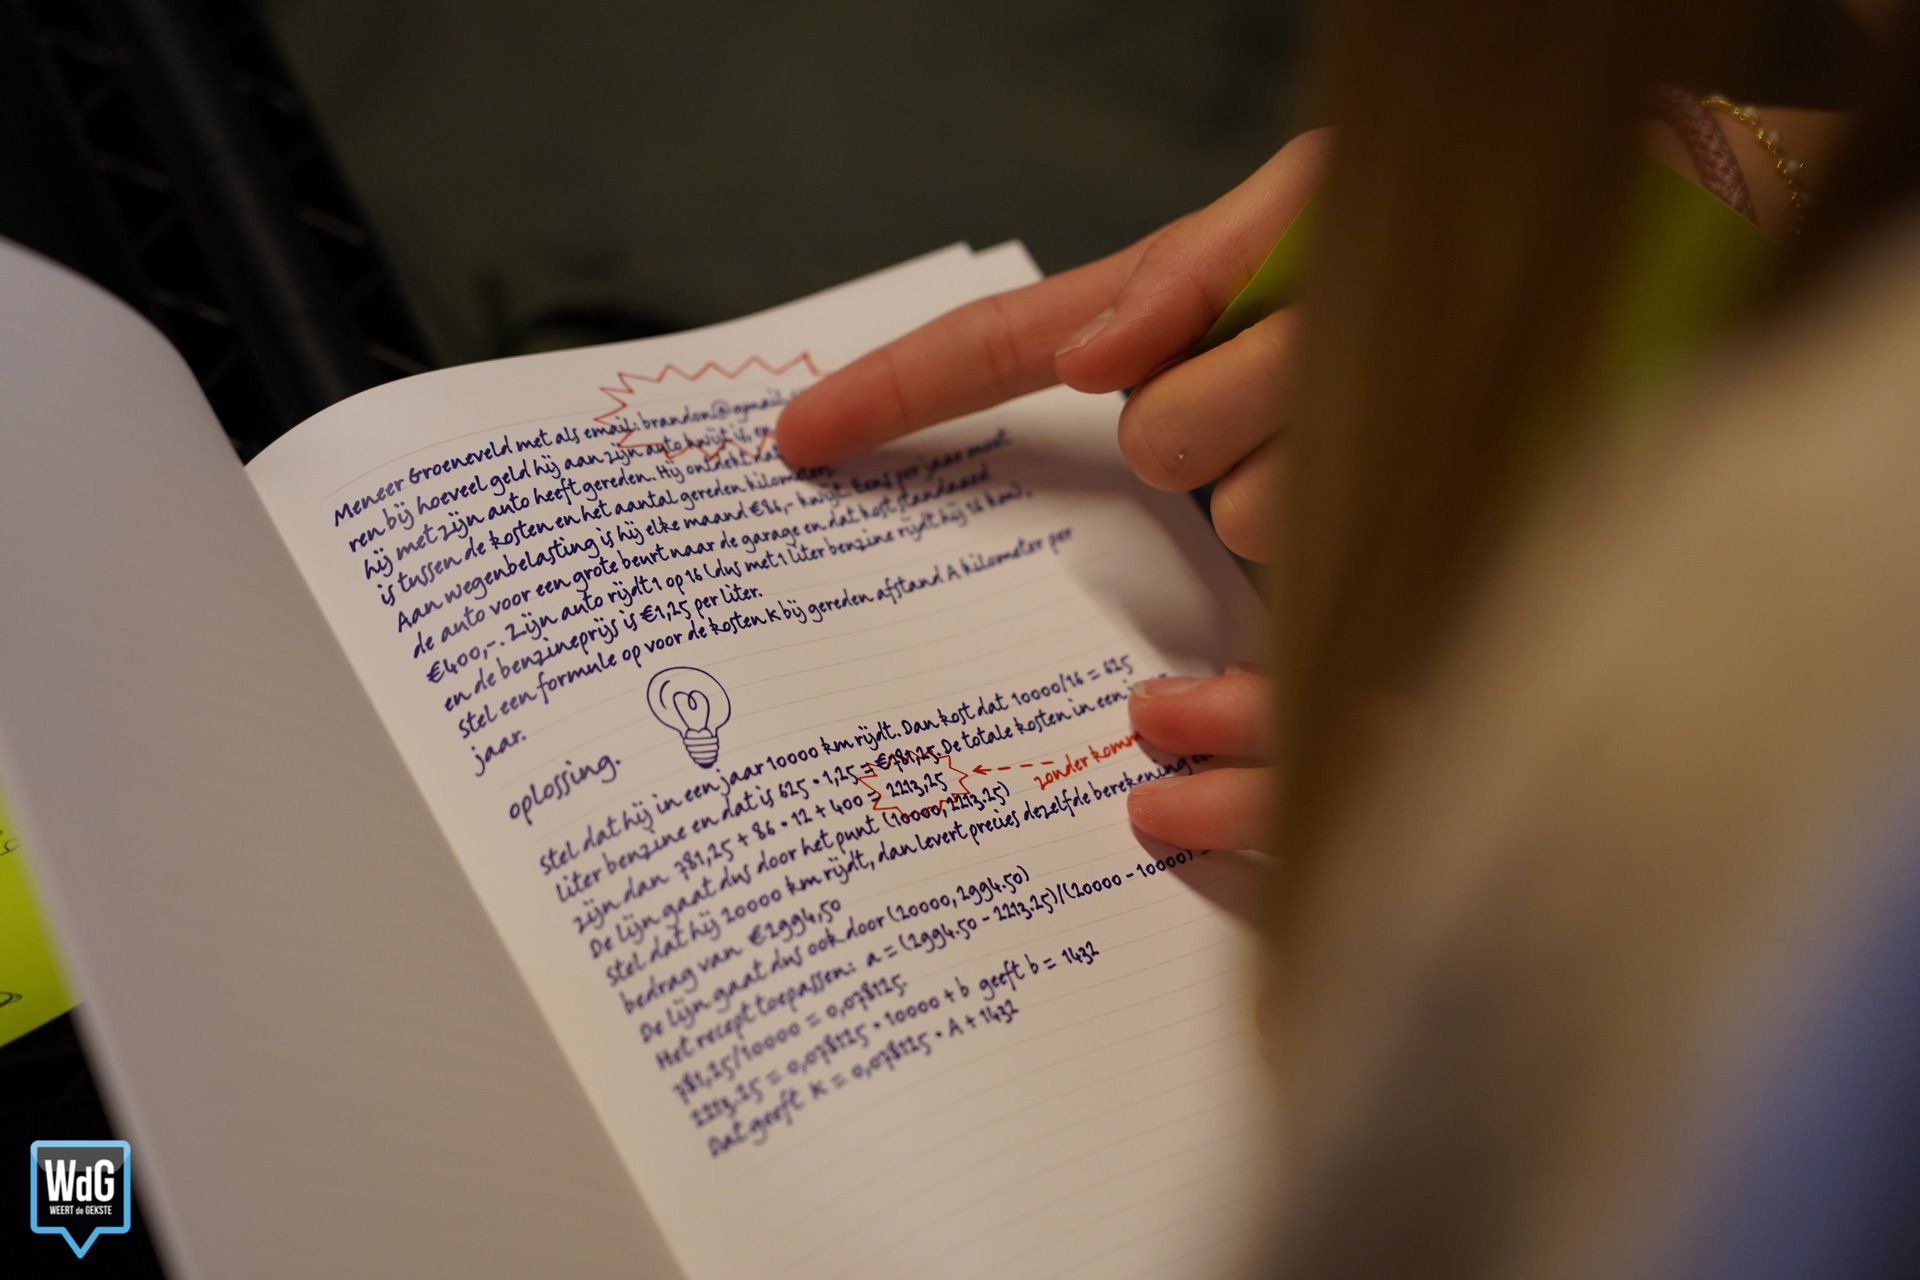 Meneer Groeneveld met als email: brandon@gmail.
ren bij hoeveel geld hij aan zijn auto kwijt is, en
hij met zijn auto heeft gereden. Hij ontdekt dat
is tussen de kosten en het aantal gereden kilometers.
Aan wegenbelasting is hij elke maand €86,- kwijt. Eens per jaar moet
de auto voor een grote beurt naar de garage en dat kost standaard
€400,-. Zijn auto rijdt 1 op 16 (dus met 1 liter benzine rijdt hij 16 km),
en de benzineprijs is €1,25 per liter.
Stel een formule op voor de kosten K bij gereden afstand A kilometer per
jaar.
oplossing.
Stel dat hij in een jaar 10000 km rijdt. Dan kost dat 10000/16 = 625
liter benzine en dat is 625 • 1,25 = €781,25. De totale kosten in een jaar
zijn dan 781,25 + 86 • 12 + 400 = 2213,25
zonder komm
De lijn gaat dus door het punt (10000, 2213.25)
Stel dat hij 20000 km rijdt, dan levert precies dezelfde berekening
bedrag van €2994,50
De lijn gaat dus ook door (20000, 2994.50)
Het recept toepassen: a = (2994.50 - 2213.25)/(20000 - 10000) =
781,25/10000 = 0,078125.
2213.25 = 0,078125 • 10000 + b geeft b = 1432
Dat geeft K = 0,078125 • A + 1432
WdG
WEERT de GEKSTE